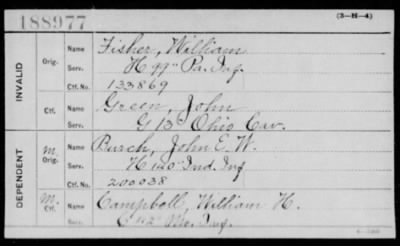 188977 (3-H-4)
INVALID
Orig. Name Fisher, William
Serv. H 99" Pa. Inf.
Ctf. No. 133869
Ctf. Name Green, John
Serv. G 13" Ohio Cav.
DEPENDENT
M. Orig. Name Burch, John E. W.
Serv. H 140" Ind. Inf
Ctf. No. 200038
M. Ctf. Name Campbell, William H.
Serv. Inf.